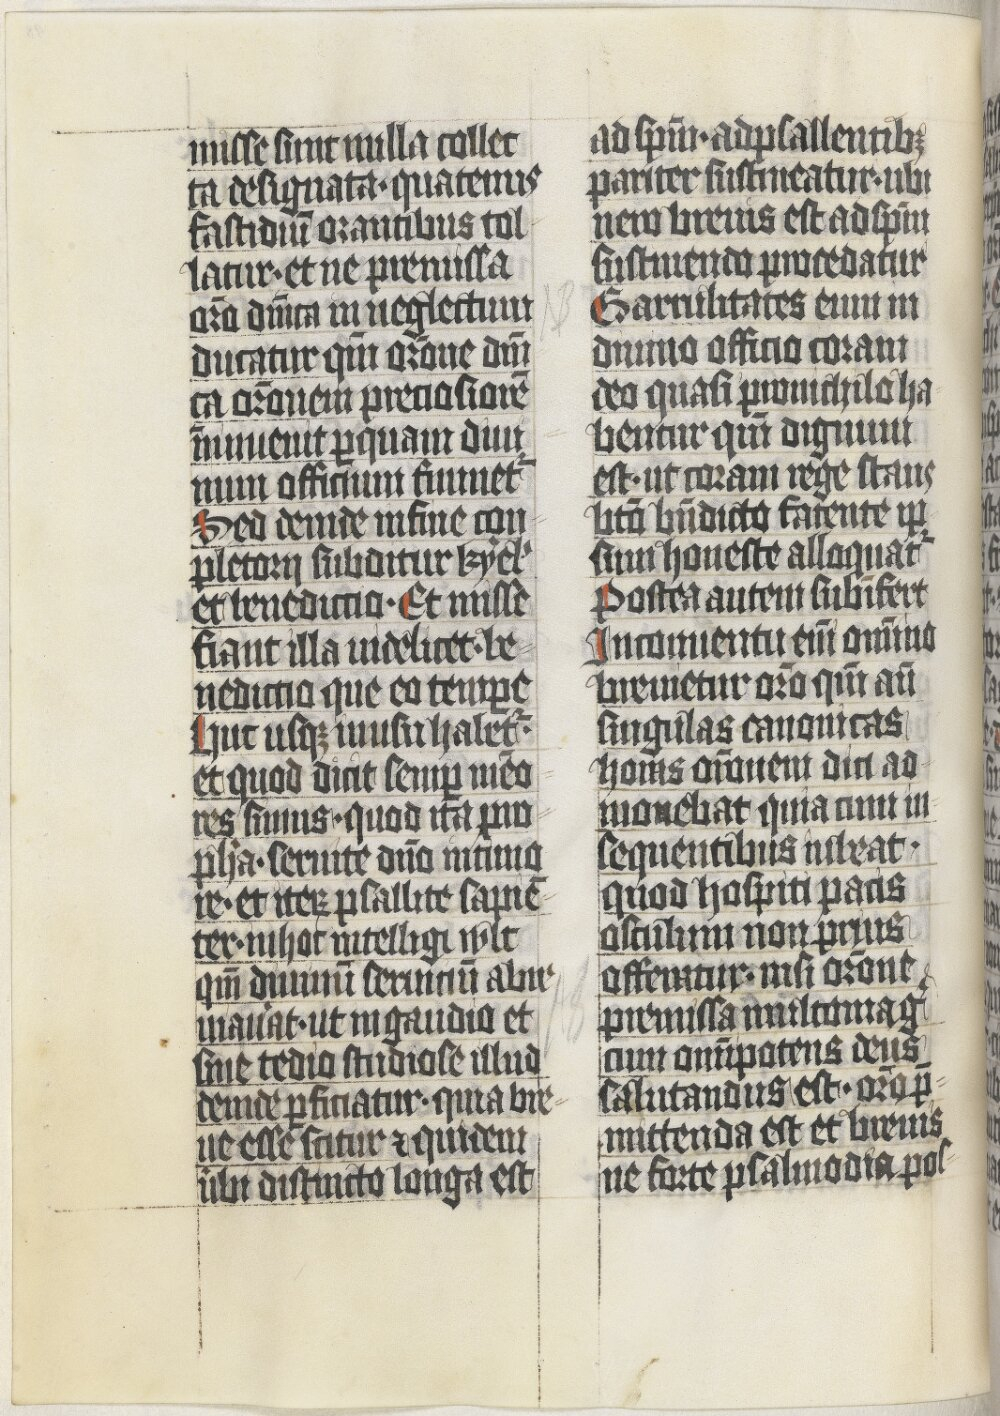 misse sint nulla collec
ta designata · quatenus
fastidiū orantibus tol
latur · et ne premissa
or̄o dn̄ica in neglectum
ducatur qm̄ or̄one dn̄i
ca or̄onem preciosiorē
īnuenit p̱quam diui
num officium finiuet᷑
Sed deinde in fine con
pletorij subditur kyel᷑
et benedictio · Et misse
fiant illa uidelicet · be
nedictio que eo temp̱e
huc usqꝫ in usu habet᷑ ·
et quod dicit semp̱ mēo
res simus · quod ita pro
ph̄a · seruite dn̄o in timo
re · et iteꝝ psallite sapiē
ter · nihot intelligi wlt
qm̄ diuinū seruiciū abre
uiauāt · ut in gaudio et
sine tedio studiose illud
deinde p̱ficiatur · quia bre
ue esse scitur ⁊ quidem
ubi distincto longa est
ad sp̄m · adpsallentibꝫ
pariter sustineatur · ubi
uero breuis est ad sp̄m
sustinendo procedatur
Garrulitates enim in
diuino officio coram
deo quasi pro nichilo ha
bentur qm̄ dignum
est · ut coram rege stans
bt̄o bn̄dicto facente ip̱
sum honeste alloquat᷑
Postea autem subinfert
In conuentu em̄ om̄ino
breuietur or̄o qm̄ an̄
singulas canonicas
horas or̄onem dici ad
monebat quia cum in
sequentibus iubeat ·
quod hospiti pacis
osculum non prius
offeratur · nisi or̄one
premissa multo mag̱
cum om̄ipotens deus
salutandus est · or̄o p̄
mittenda est et breuis
ne forte psalmodia pos